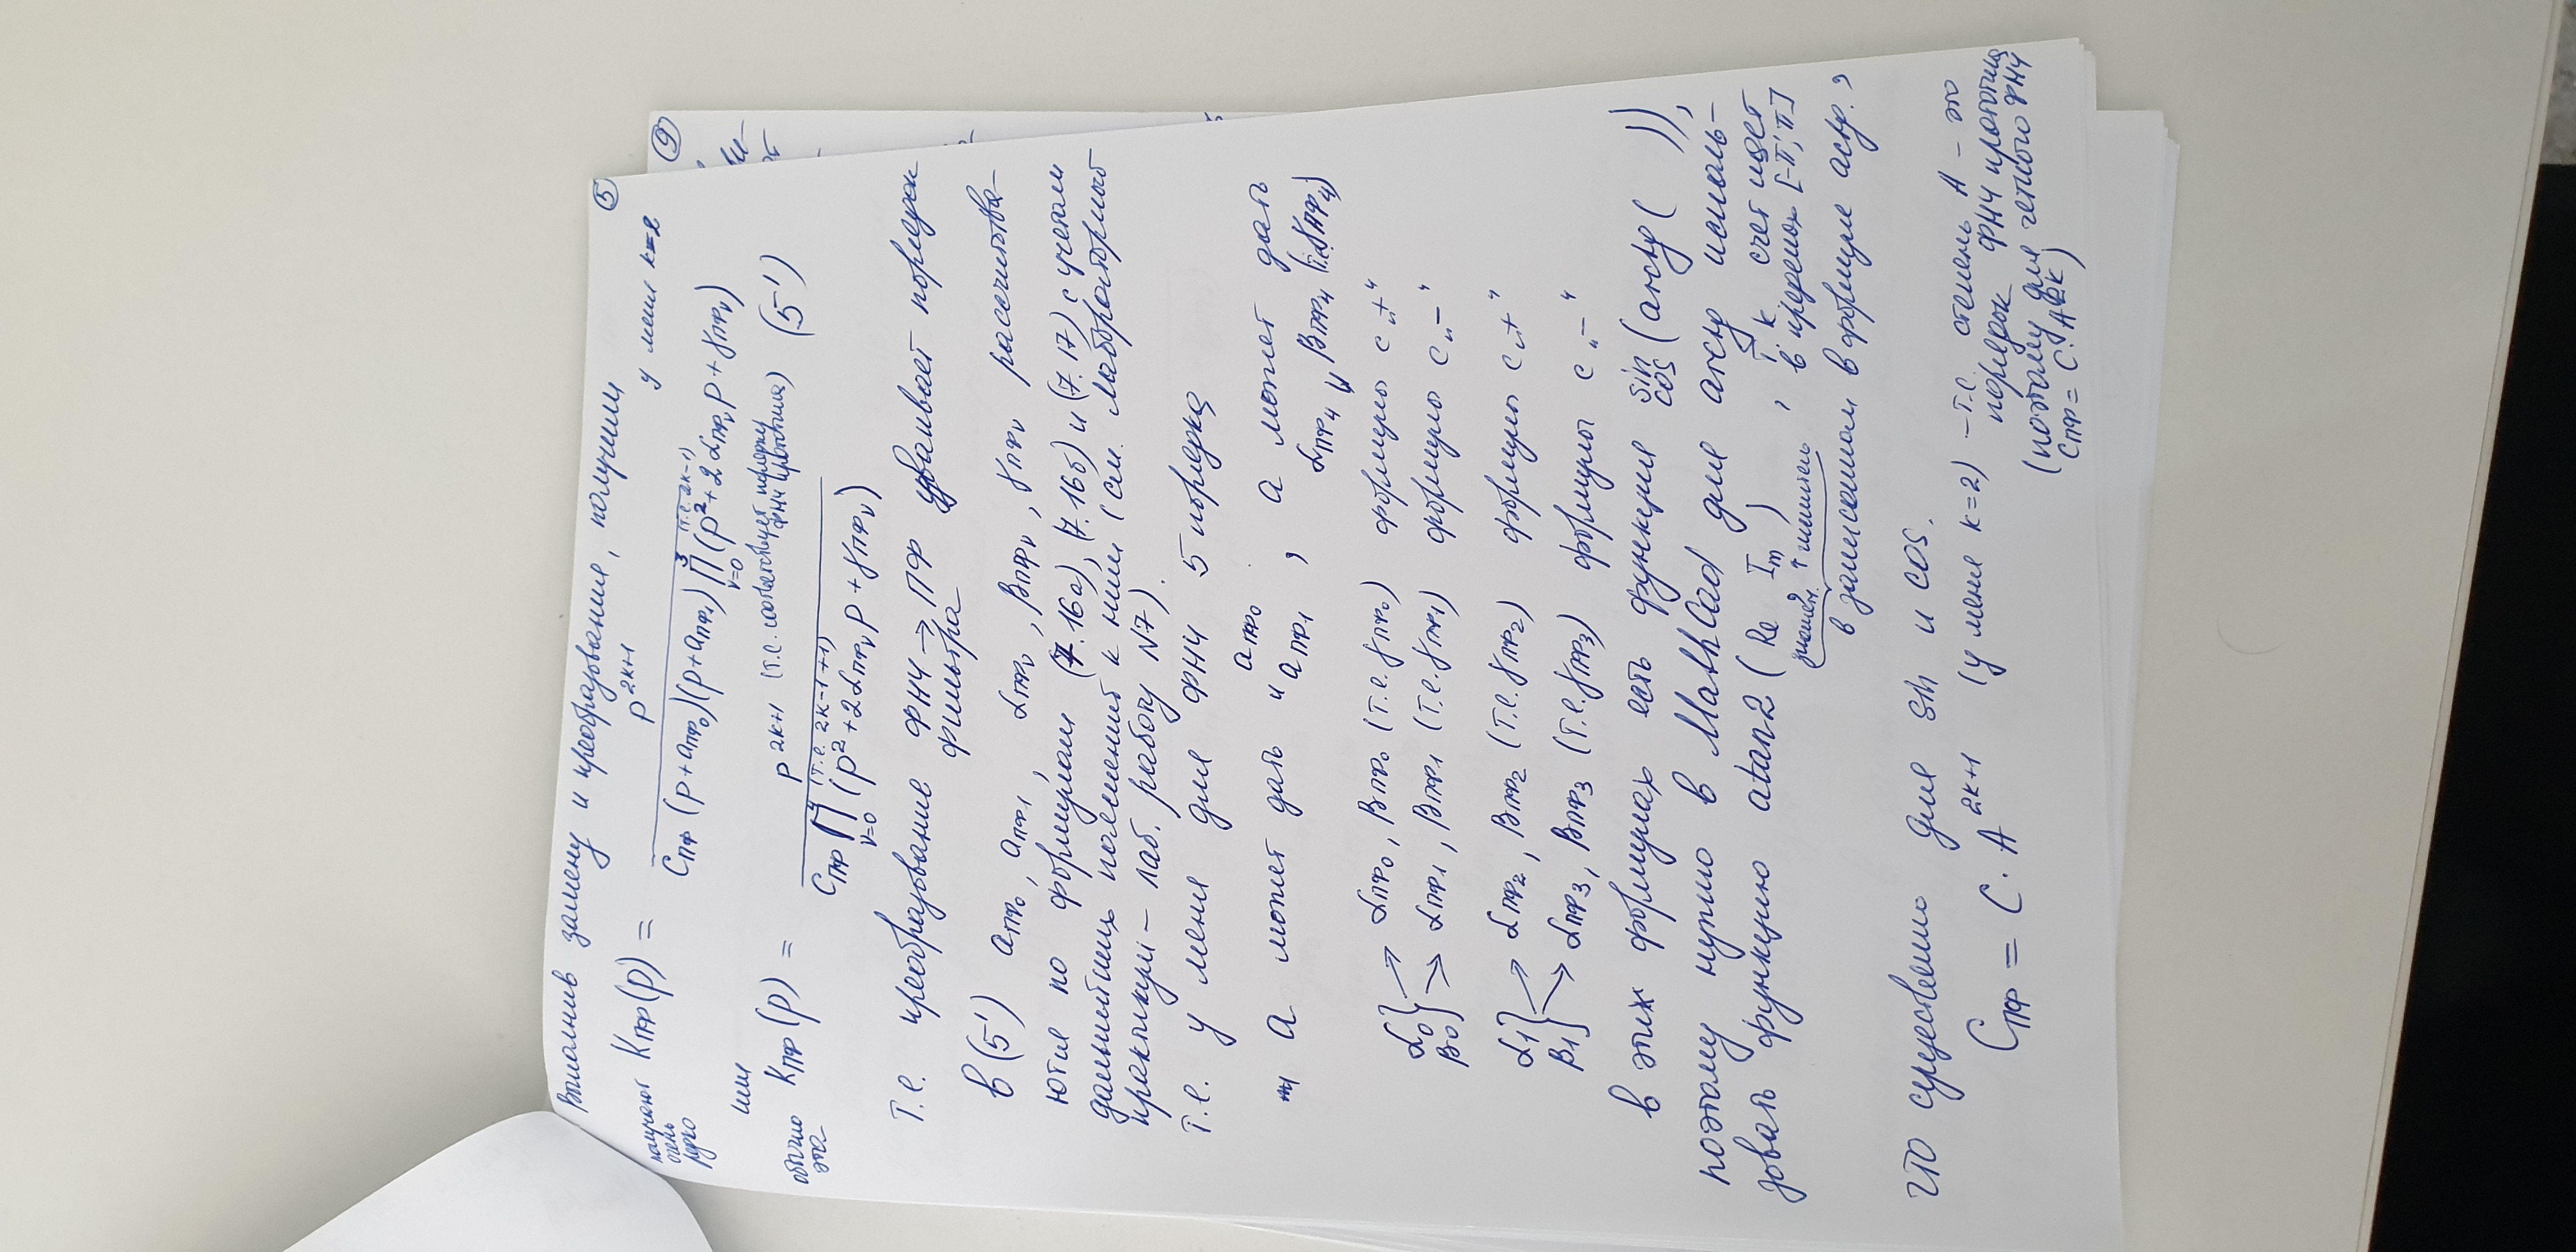 Выполнив замену и преобразования, получили
⑤
получают очень редко
K_ПФ(p) = p^{2k+1} / (C_ПФ (p + a_ПФ0)(p + a_ПФ1) ∏_{ν=0}^{3 (т.е. 2k-1)} (p² + 2α_ПФν p + γ_ПФν))
у меня k=2
⑨
или
обычно это
K_ПФ(p) = p^{2k+1 (т.е. соответствует порядку ФНЧ прототипа)} / (C_ПФ ∏_{ν=0}^{4 (т.е. 2k-1+1)} (p² + 2α_ПФν p + γ_ПФν)) (5')
Т.е. преобразование ФНЧ → ПФ удваивает порядок
фильтра
в (5') a_ПФ0, a_ПФ1, α_ПФν, β_ПФν, γ_ПФν рассчитыва-
ются по формулам (7.16а), (7.16б) и (7.17) с учетом
дальнейших пояснений к ним (см. Лабораторный
практикум – лаб. работу N7).
Т.е. у меня для ФНЧ 5 порядка
a может дать "a_ПФ0 a_ПФ1, a может дать
α_ПФ4 и β_ПФ4 (т.е. γ_ПФ4)
α0 β0 } → α_ПФ0, β_ПФ0 (т.е. γ_ПФ0) формулы с „+“
→ α_ПФ1, β_ПФ1 (т.е. γ_ПФ1) формулы с „–“
α1 β1 } → α_ПФ2, β_ПФ2 (т.е. γ_ПФ2) формулы с „+“
→ α_ПФ3, β_ПФ3 (т.е. γ_ПФ3) формулы с „–“
в этих формулах есть функция sin cos (arctg( )),
поэтому нужно в MathCad для arctg исполь-
зовать функцию atan2 (Re Im), т.к. счет идет
знамен. ↑ числитель
в пределах [-π; π]
в записанном в формуле arctg.,
что существенно для sin и cos.
C_ПФ = C · A^{2k+1} (у меня k=2) – т.е. степень A – это
порядок ФНЧ прототипа
(поэтому для четного ФНЧ
C_ПФ = C · A^{2k})